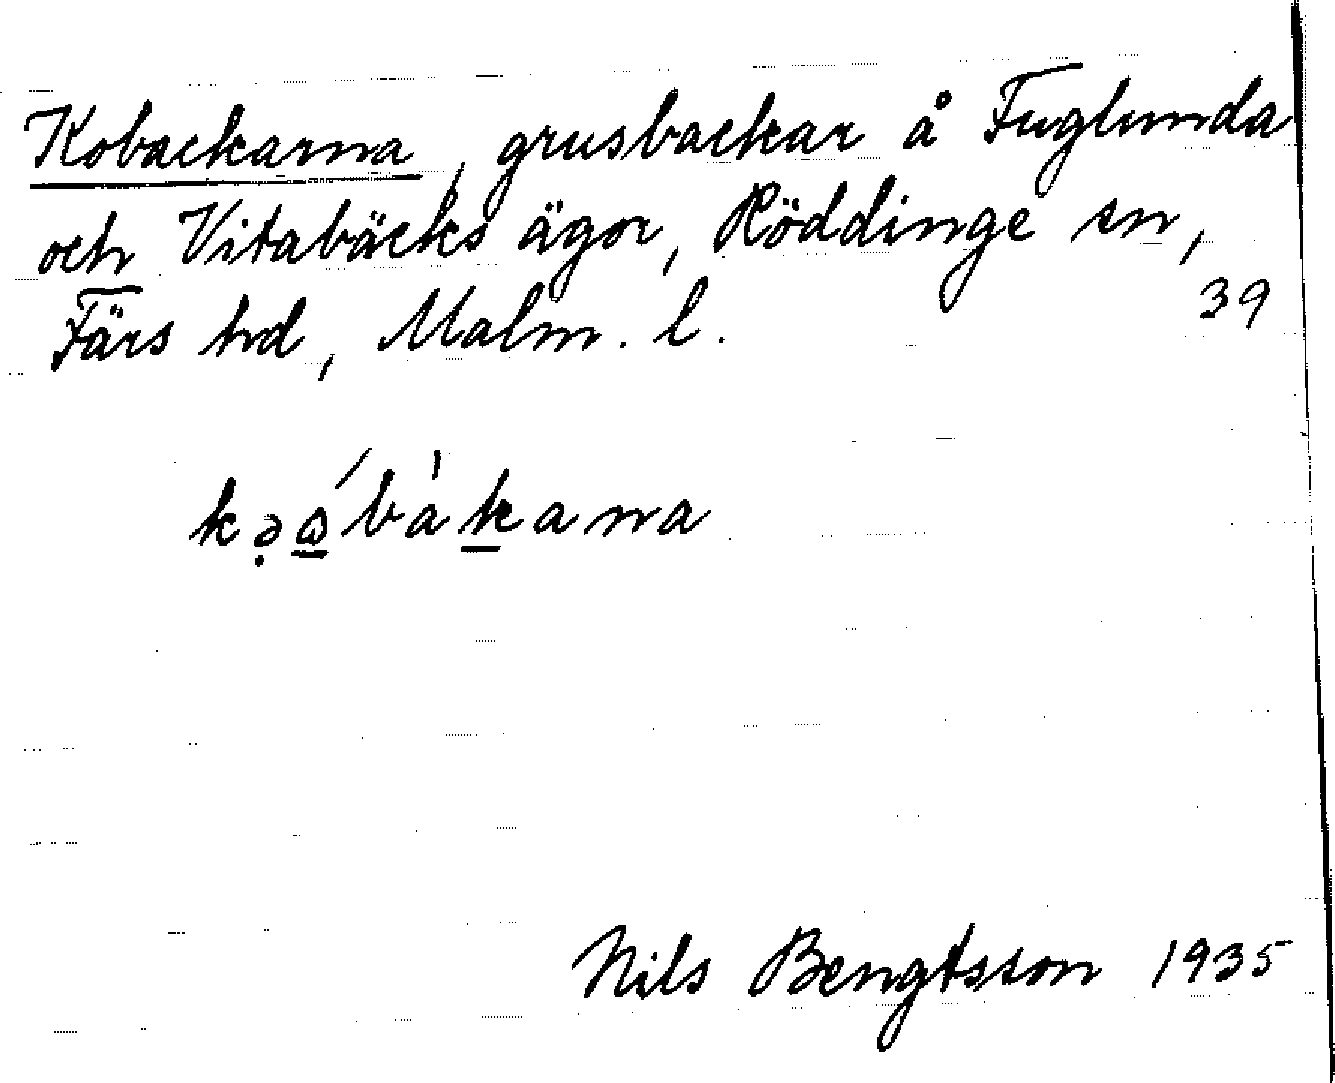 Kobackarna, grusbackar å Fuglunda
och Vitabäcks ägor, Röddinge sn,
Färs hd, Malm. l. 39
Nils Bengtsson 1935